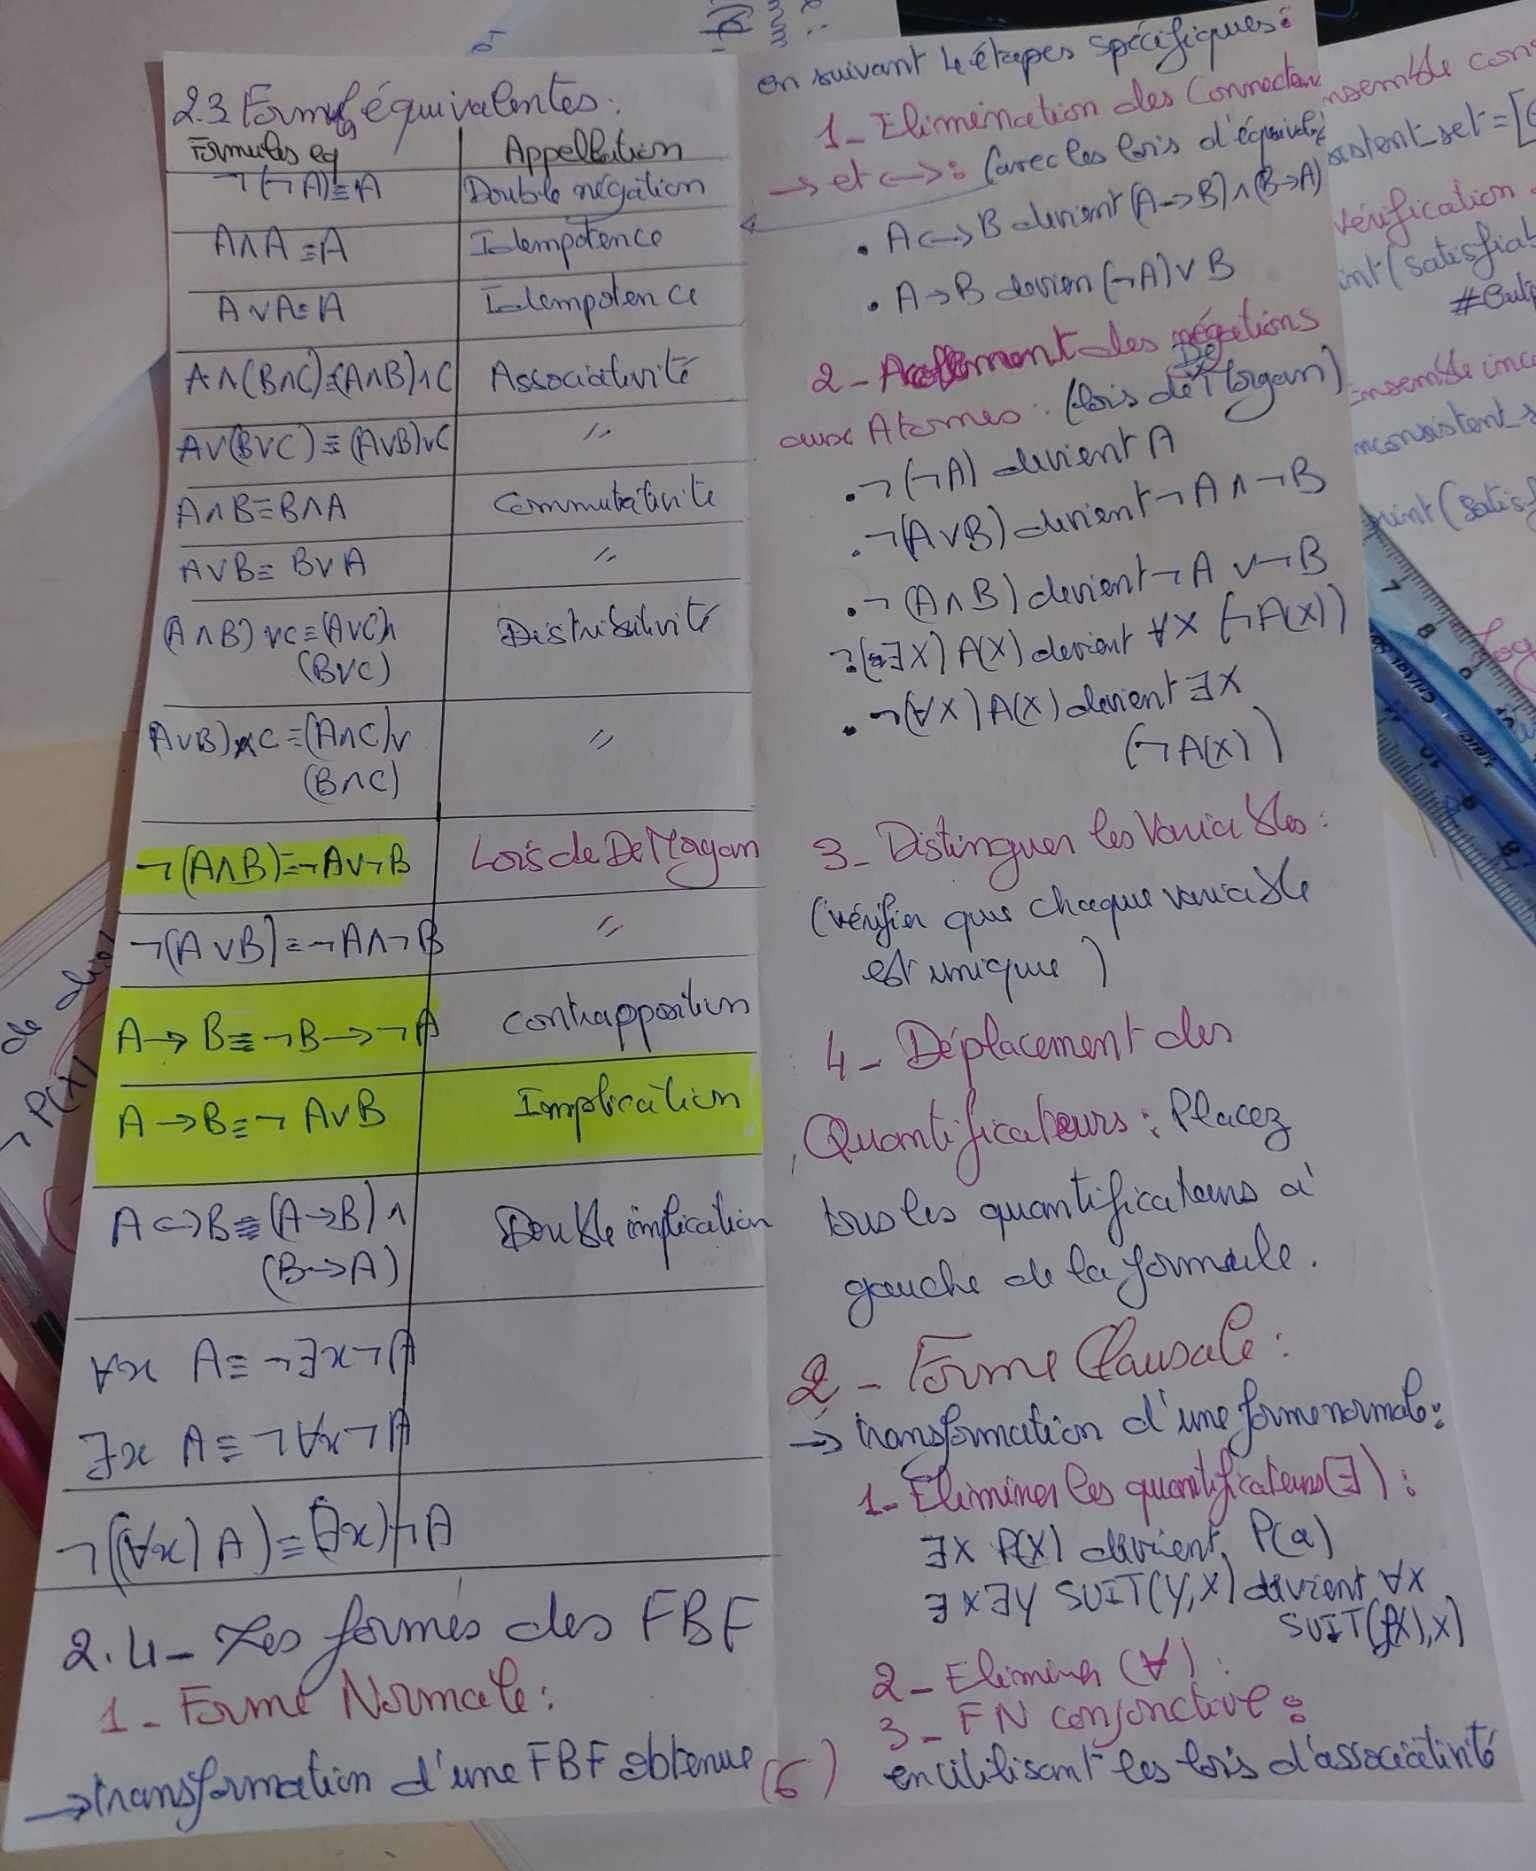 2.3 Formules équivalentes:
Formules eq | Appellation
¬(¬A)≡A | Double négation
A∧A≡A | Idempotence
A∨A≡A | Idempotence
A∧(B∧C)≡(A∧B)∧C | Associativité
A∨(B∨C)≡(A∨B)∨C | "
A∧B≡B∧A | Commutativité
A∨B≡B∨A | "
(A∧B)∨C≡(A∨C)∧ | Distributivité
(B∨C)
A∨B)∧C≡(A∧C)∨ | "
(B∧C)
¬(A∧B)≡¬A∨¬B | Lois de De Morgan
¬(A∨B)≡¬A∧¬B | "
A→B≡¬B→¬A | Contrapposition
A→B≡¬A∨B | Implication
A↔B≡(A→B)∧ | Double implication
(B→A)
∀x A≡¬∃x¬A
∃x A≡¬∀x¬A
¬((∀x)A)≡(∃x)¬A
2.4- Les formes des FBF
1- Forme Normale:
→transformation d'une FBF obtenue
en suivant 4 étapes spécifiques:
1- Elimination des Connecteu
→ et ↔: (avec les lois d'équivale
• A↔B devient (A→B)∧(B→A)
• A→B devien (¬A)∨B
2- des négations
aux Atomes: (lois de De Morgan)
•¬(¬A) devient A
•¬(A∨B) devient ¬A∧¬B
•¬(A∧B) devient ¬A∨¬B
¬(∃X) A(X) devient ∀X (¬A(X))
•¬(∀X) A(X) devient ∃X
(¬A(X))
3- Distinguer les Variables:
(vérifier que chaque variable
est unique)
4- Déplacement des
Quantificateurs: Placez
tous les quantificateurs à
gauche de la formule.
2- Forme Clausale:
→ transformation d'une forme normale:
1- Eliminer les quantificateurs(∃):
∃X P(X) devient P(a)
∃X∃Y SUIT(Y,X) devient ∀X
SUIT(f(X),X)
2- Eliminer (∀):
3- FN conjonctive:
en utilisant les lois d'associativité
(6)
nsemble cons
sistent_set=[
Vérification
int(satisfiab
#Outp
Ensemble inco
inconsistent_s
rint(satisf
Log
7
8
9
de
¬P(X)